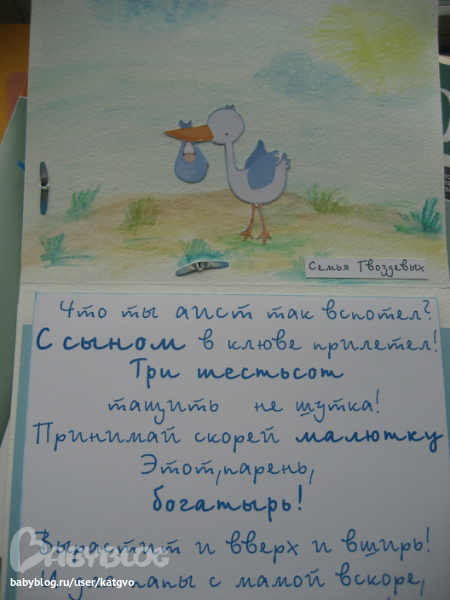 Семья Гвоздевых
Что ты аист так вспотел?
С сыном в клюве прилетел!
Три шестьсот
тащить не шутка!
Принимай скорей малютку
Этот,парень,
богатырь!
Вырастит и вверх и вширь!
И у папы с мамой вскоре,
BABYBLOG
babyblog.ru/user/katgvo